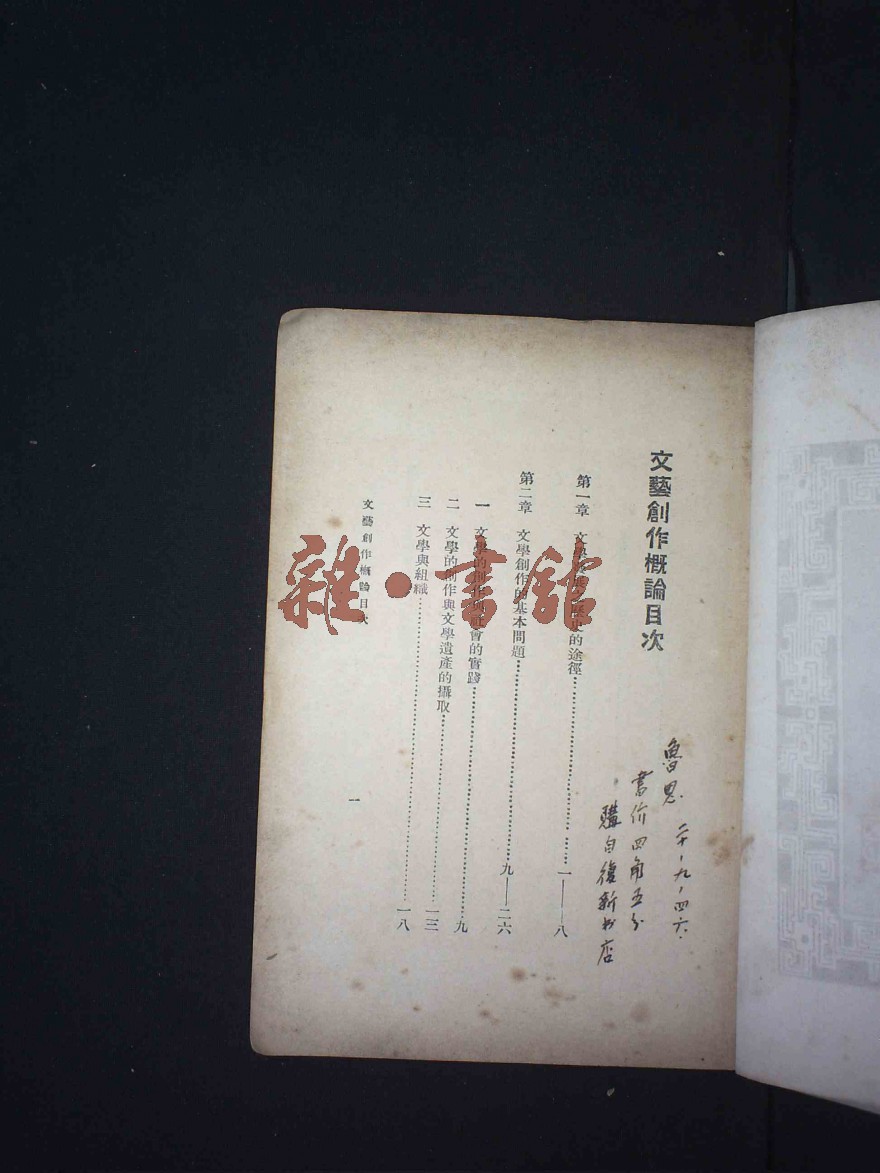 文藝創作概論目次
魯思 二十·九·四六·
書价四角五分
購自復新书店
第一章 文學發展之歷史的途徑…………一——八
第二章 文學創作的基本問題…………九——二六
一 文學的創作與社會的實踐…………九
二 文學的創作與文學遺產的攝取…………一三
三 文學與組織…………一八
文藝創作概論目次
一
雜·書館